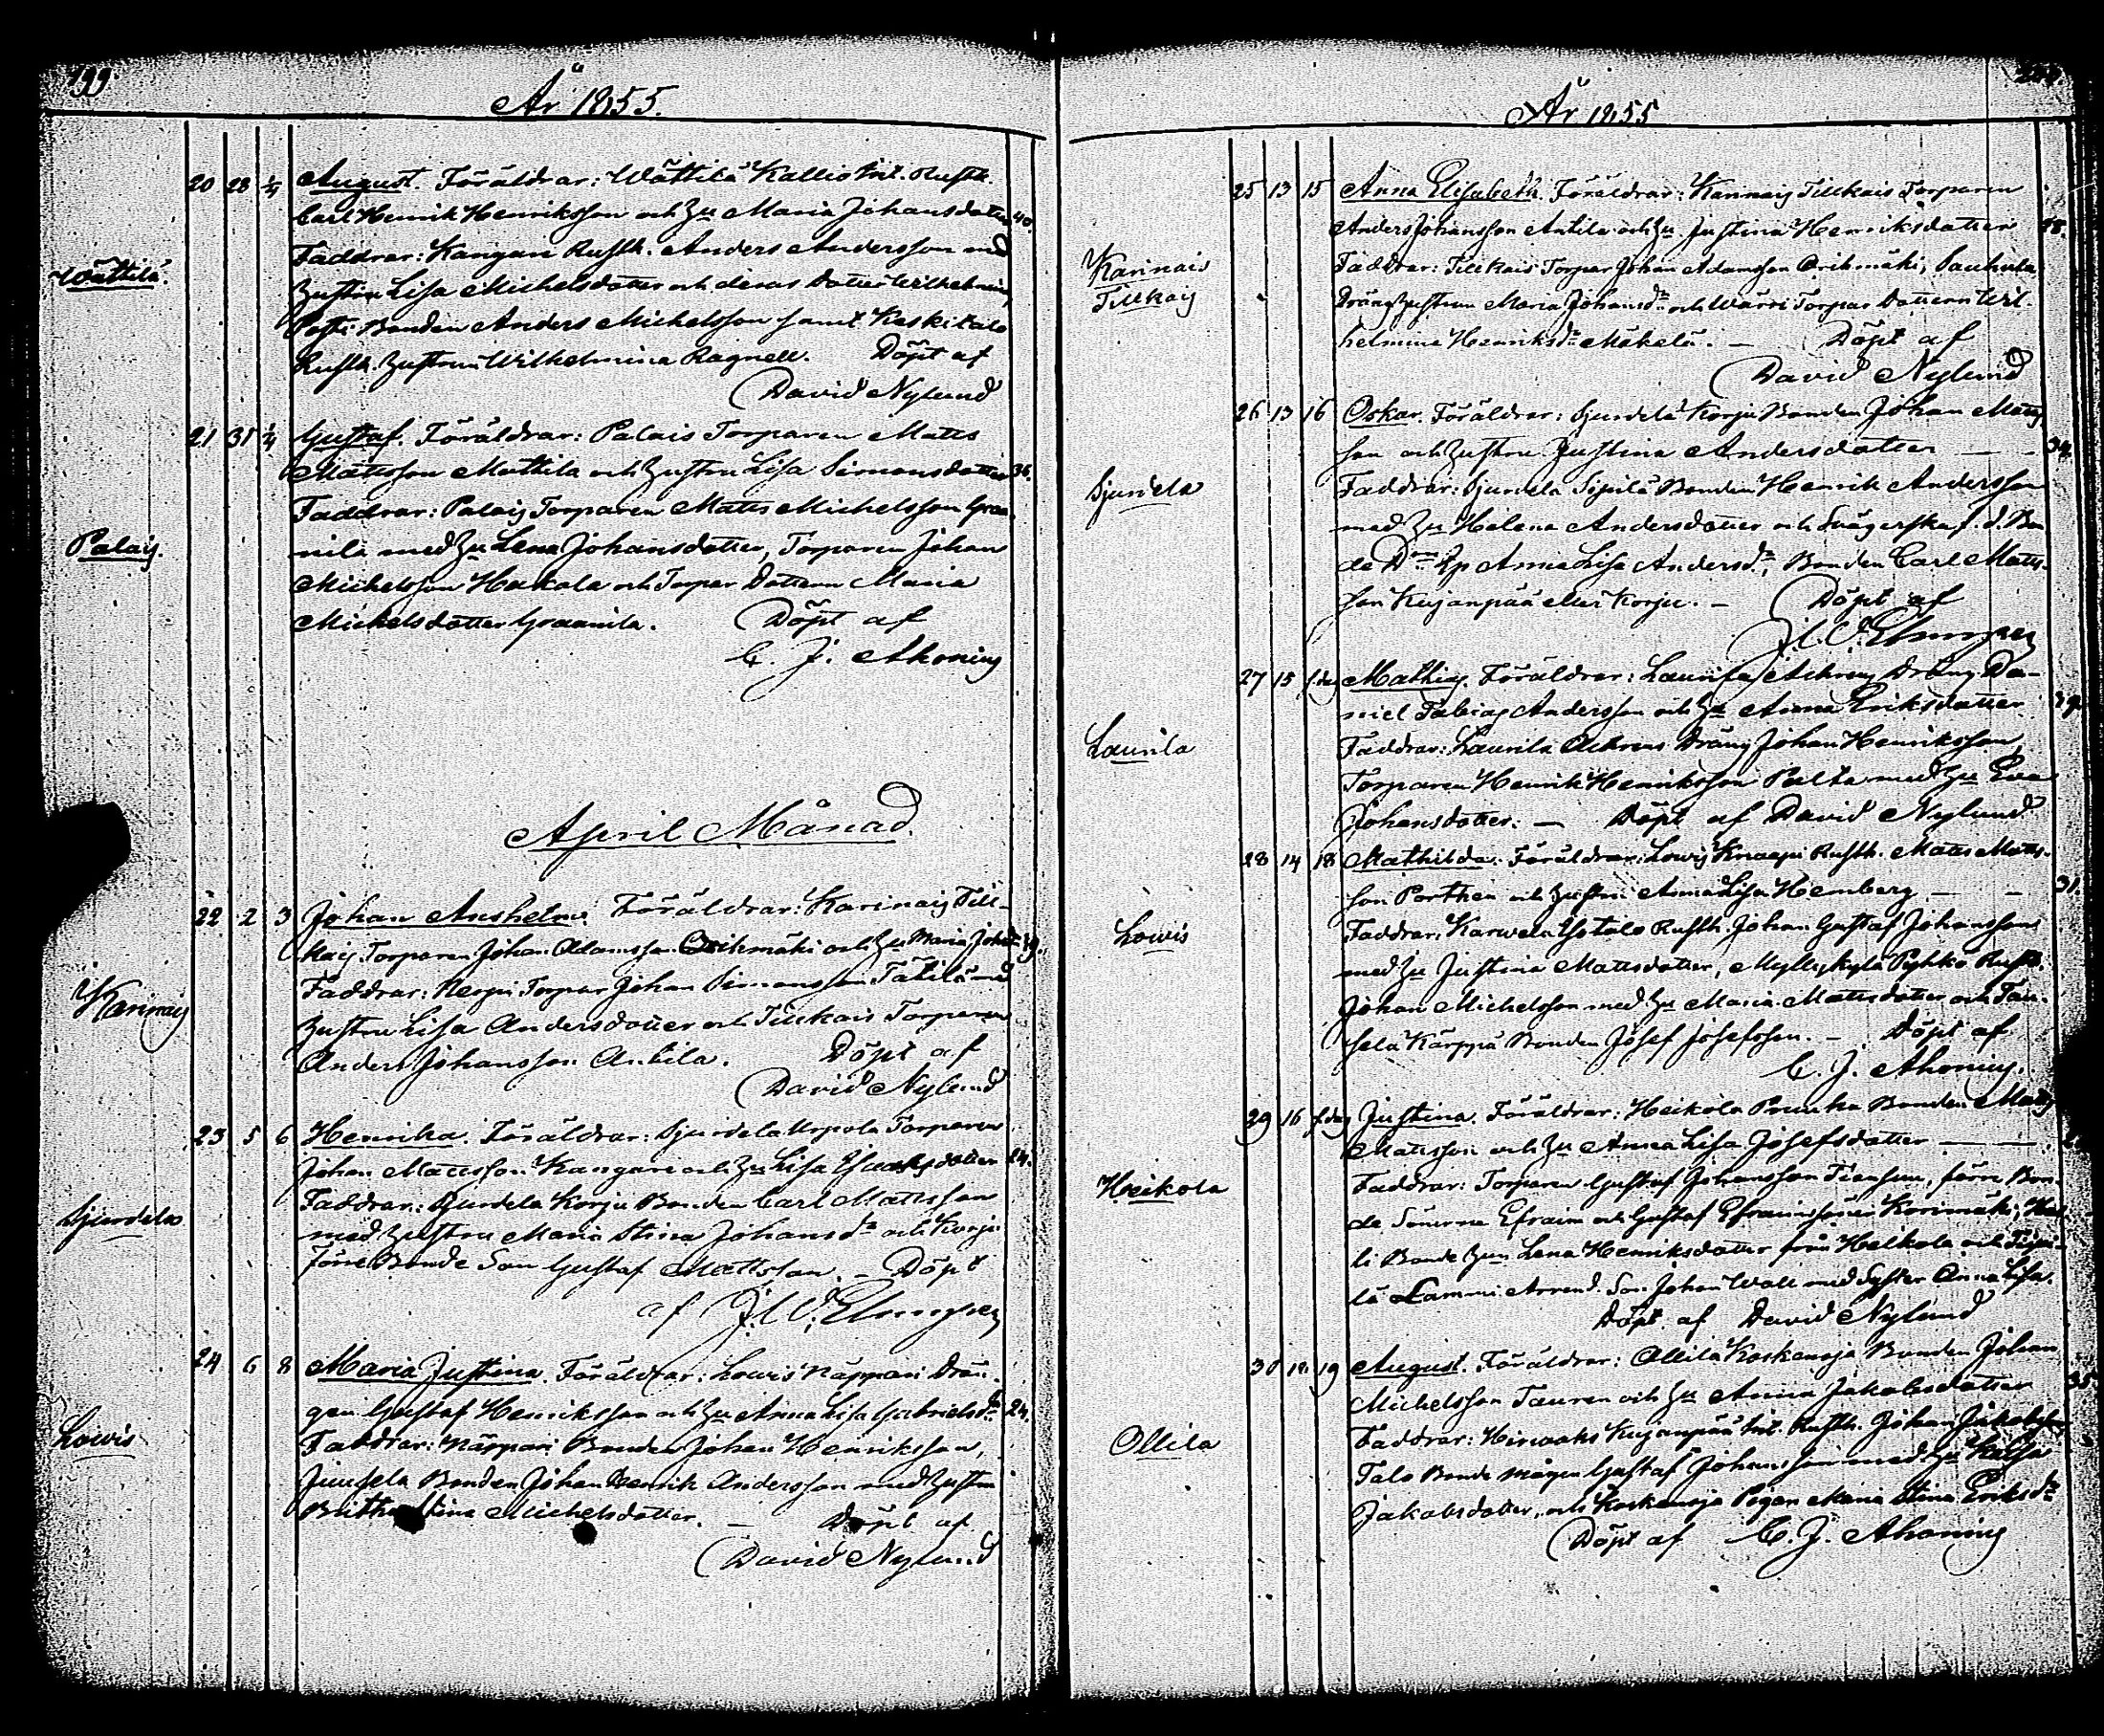 199.
År 1855.
Wättilä.
20 28 1/4 August. Föräldrar: Wättilä Kallio Rusth.
Carl Henrik Henriksson och Hu Maria Johansdotter 40.
Faddrar: Kangare Rusth. Anders Andersson med
hustru Lisa Michelsdotter och deras dotter Wilhelmina,
Posti Bonden Anders Michelsson samt Keskitalo
Rusth. hustrun Wilhelmina Ragnell. Döpt af
David Nylund
Palais.
21 31 1/4 Gustaf. Föräldrar: Palais Torparen Matts
Mattsson Mattila och hustru Lisa Simonsdotter 36.
Faddrar: Palais Torparen Matts Michelsson Graa-
nila med Hu Lena Johansdotter, Torparen Johan
Michelsson Hakala och Torpar Dottern Maria
Michelsdotter Graanila. Döpt af
C. J. Ahonius
April Månad.
Karinais
22 2 3 Johan Anshelm. Föräldrar: Karinais Till-
kais Torparen Johan Adamsson Orihmäki och Hu Maria Johsdr 39.
Faddrar: Torpar Johan Simonsson Tätilä med
hustru Lisa Andersdotter och Tillkais Torparen
Anders Johansson Antila. Döpt af
David Nylund
Sjurdela
23 5 6 Henrika. Föräldrar: Sjurdela Uspola Torparen
Johan Mattsson Kangare och Hu Lisa Isaaksdotter 24.
Faddrar: Sjurdela Korju Bonden Carl Mattsson
med hustru Maria Stina Johansdr och Korju
förre Bonde Son Gustaf Mattsson. – Döpt
af
Lowis
24 6 8 Maria Justina. Föräldrar: Lowis Näppari Drän-
gen Gustaf Henriksson och Hu Anna Lisa Gabrielsdr 24.
Faddrar: Näppari Bonden Johan Henriksson,
Juusela Bonden Johan Henrik Andersson med hustru
Michelsdotter. – Döpt af
David Nylund
År 1855
Karinais
Tillkais
25 13 15 Anna Elisabeth. Föräldrar: Karinais Tillkais Torparen
Anders Johansson Antila och Hu Justina Henriksdotter 28.
Faddrar: Tillkais Torpar Johan Adamsson Orihmäki, Pauhula
Dräng hustrun Maria Johansdr och Wärri Torpar Dottern Wil-
helmina Henriksdr Mäkelä. – Döpt af
David Nylund
Sjurdela
26 13 16 Oskar. Föräldrar: Sjurdela Korju Bonden Johan Matts-
son och hustru Justina Andersdotter — – 34.
Faddrar: Sjurdela Sipilä Bonden Henrik Andersson
med Hu Helena Andersdotter och Svägerska, f. d. Bon-
de Anna Lisa Andersdr, Bonden Carl Matts-
son Kujanpää eller Korju. – Döpt af
Laurila
27 15 s. dag Mathias. Föräldrar: Laurila Ackrens Dräng Da-
niel Tobias Andersson och Hu Anna Eriksdotter 39.
Faddrar: Laurila Ackrens Dräng Johan Henriksson,
Torparen Henrik Henriksson Palta med Hu Eva
Johansdotter. – Döpt af David Nylund
Lowis
28 14 18 Mathilda. Föräldrar: Lowis Knaapi Rusth. Matts Matts-
son Porthen och hustru Anna Lisa Hemberg — – 31.
Faddrar: Karwela Yotalo Rusth. Johan Gustaf Johansson
med Hu Justina Mattsdotter, Myllykylä Pyhkö Rusth.
Johan Michelsson med Hu Maria Mattsdotter och Tau-
sela Kärppä Bonden Josef Josefsson. – Döpt af
C. J. Ahonius.
Heikola
29 16 s. dag Justina. Föräldrar: Heikola Prunka Bonden Matts
Mattsson och Hu Anna Lisa Josefsdotter — —
Faddrar: Torparen Gustaf Johansson Tiensuu, förre Bon-
de Sönerne Efraim och Gustaf Efraimssöner Korimäki,
Bonde Hun Lena Henriksdotter från Heikola och
lä Lammi Arrend. Son Johan Wall med Syster Anna Lisa.
Döpt af David Nylund
Ollila
30 18 19 August. Föräldrar: Ollila Koskenoja Bonden Johan
Michelsson Tauren och Hu Anna Jakobsdotter 35.
Faddrar: Hirwoaho Kujanpää Rusth. Johan Jakobsson,
Talo Bonde mågen Gustaf Johansson med Hu
Jakobsdotter, och Koskenoja Pigan Maria Stina Eriksdr
Döpt af C. J. Ahonius